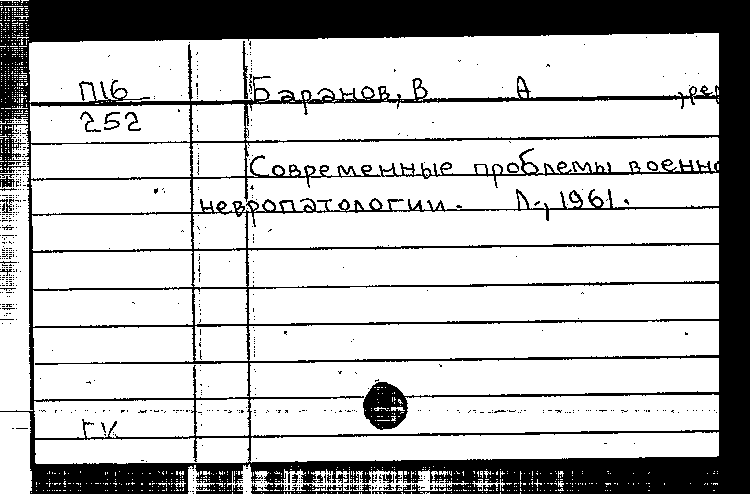 П16 Баранов, В А , рер
252
Современные проблемы военно
невропатологии. Л., 1961.
ГК